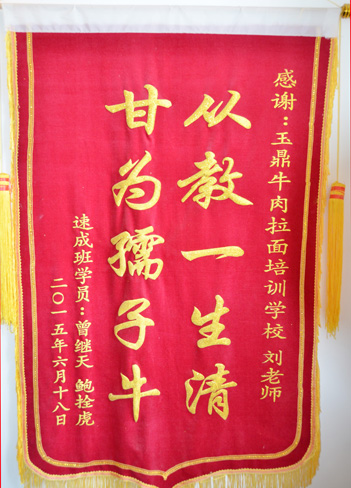 感谢：玉鼎牛肉拉面培训学校 刘老师
从教一生清
甘为孺子牛
速成班学员：曾继天 鲍拴虎
二〇一五年六月十八日